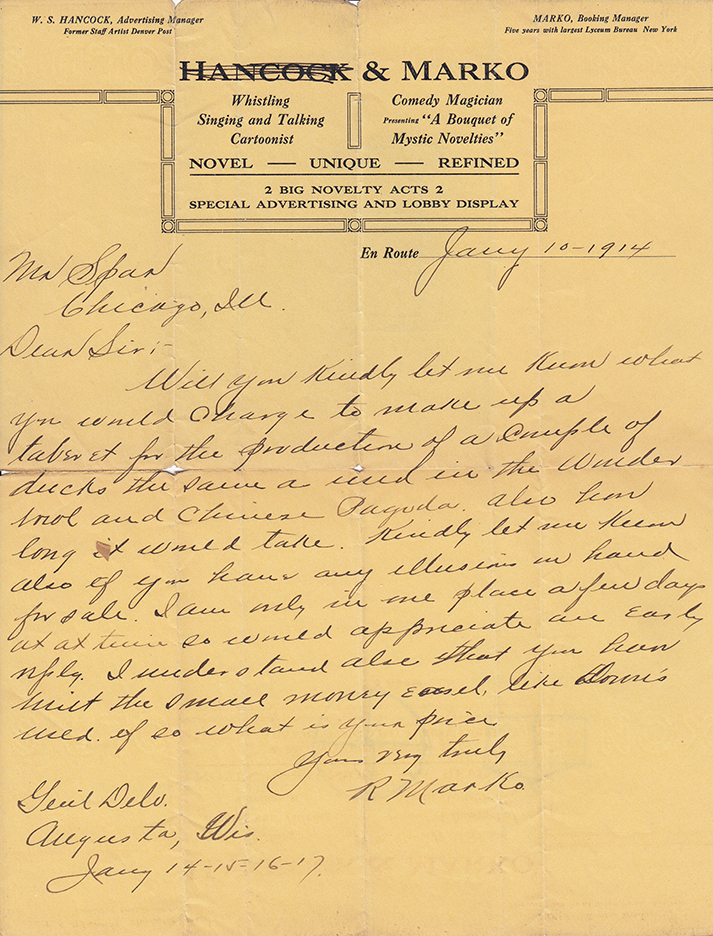 W. S. HANCOCK, Advertising Manager
Former Staff Artist Denver Post
MARKO, Booking Manager
Five years with largest Lyceum Bureau New York
HANCOCK & MARKO
Whistling
Singing and Talking
Cartoonist
Comedy Magician
Presenting "A Bouquet of
Mystic Novelties"
NOVEL — UNIQUE — REFINED
2 BIG NOVELTY ACTS 2
SPECIAL ADVERTISING AND LOBBY DISPLAY
En Route Jany 10-1914
Mr Span
Chicago, Ill.
Dear Sir:-
Will you Kindly let me Know what
you would Charge to make up a
taberet for the production of a Couple of
ducks the same a used in the Wonder
bowl and Chinese Pagoda. also how
long it would take. Kindly let me Know
also if you have any illusions on hand
for sale. I am only in one place a few days
at at time so would appriciate an Early
reply. I understand also that you have
the small money Easel, like Down's
used. if so what is your price
Yours very truly
R Marko
Genl Delv.
Augusta, Wis.
Jany 14-15-16-17.